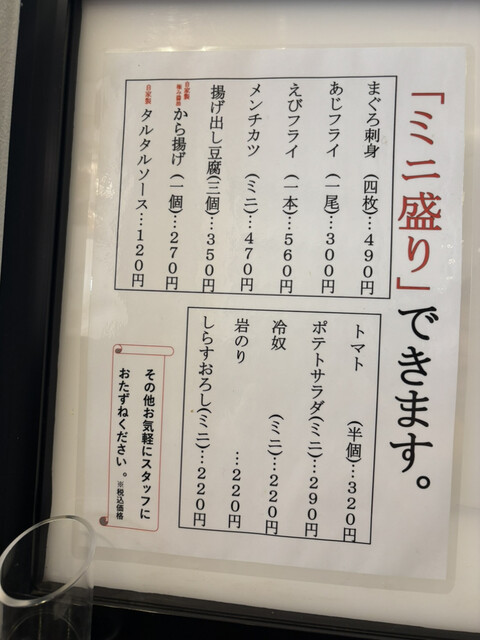 「ミニ盛り」できます。
まぐろ刺身（四枚）…490円
あじフライ（一尾）…300円
えびフライ（一本）…560円
メンチカツ（ミニ）…470円
揚げ出し豆腐(三個)…350円
自家製
から揚げ（一個）…270円
自家製
タルタルソース…120円
トマト（半個）…320円
ポテトサラダ(ミニ)…290円
冷奴（ミニ）…220円
岩のり…220円
しらすおろし(ミニ)…220円
その他お気軽にスタッフに
おたずねください。※税込価格